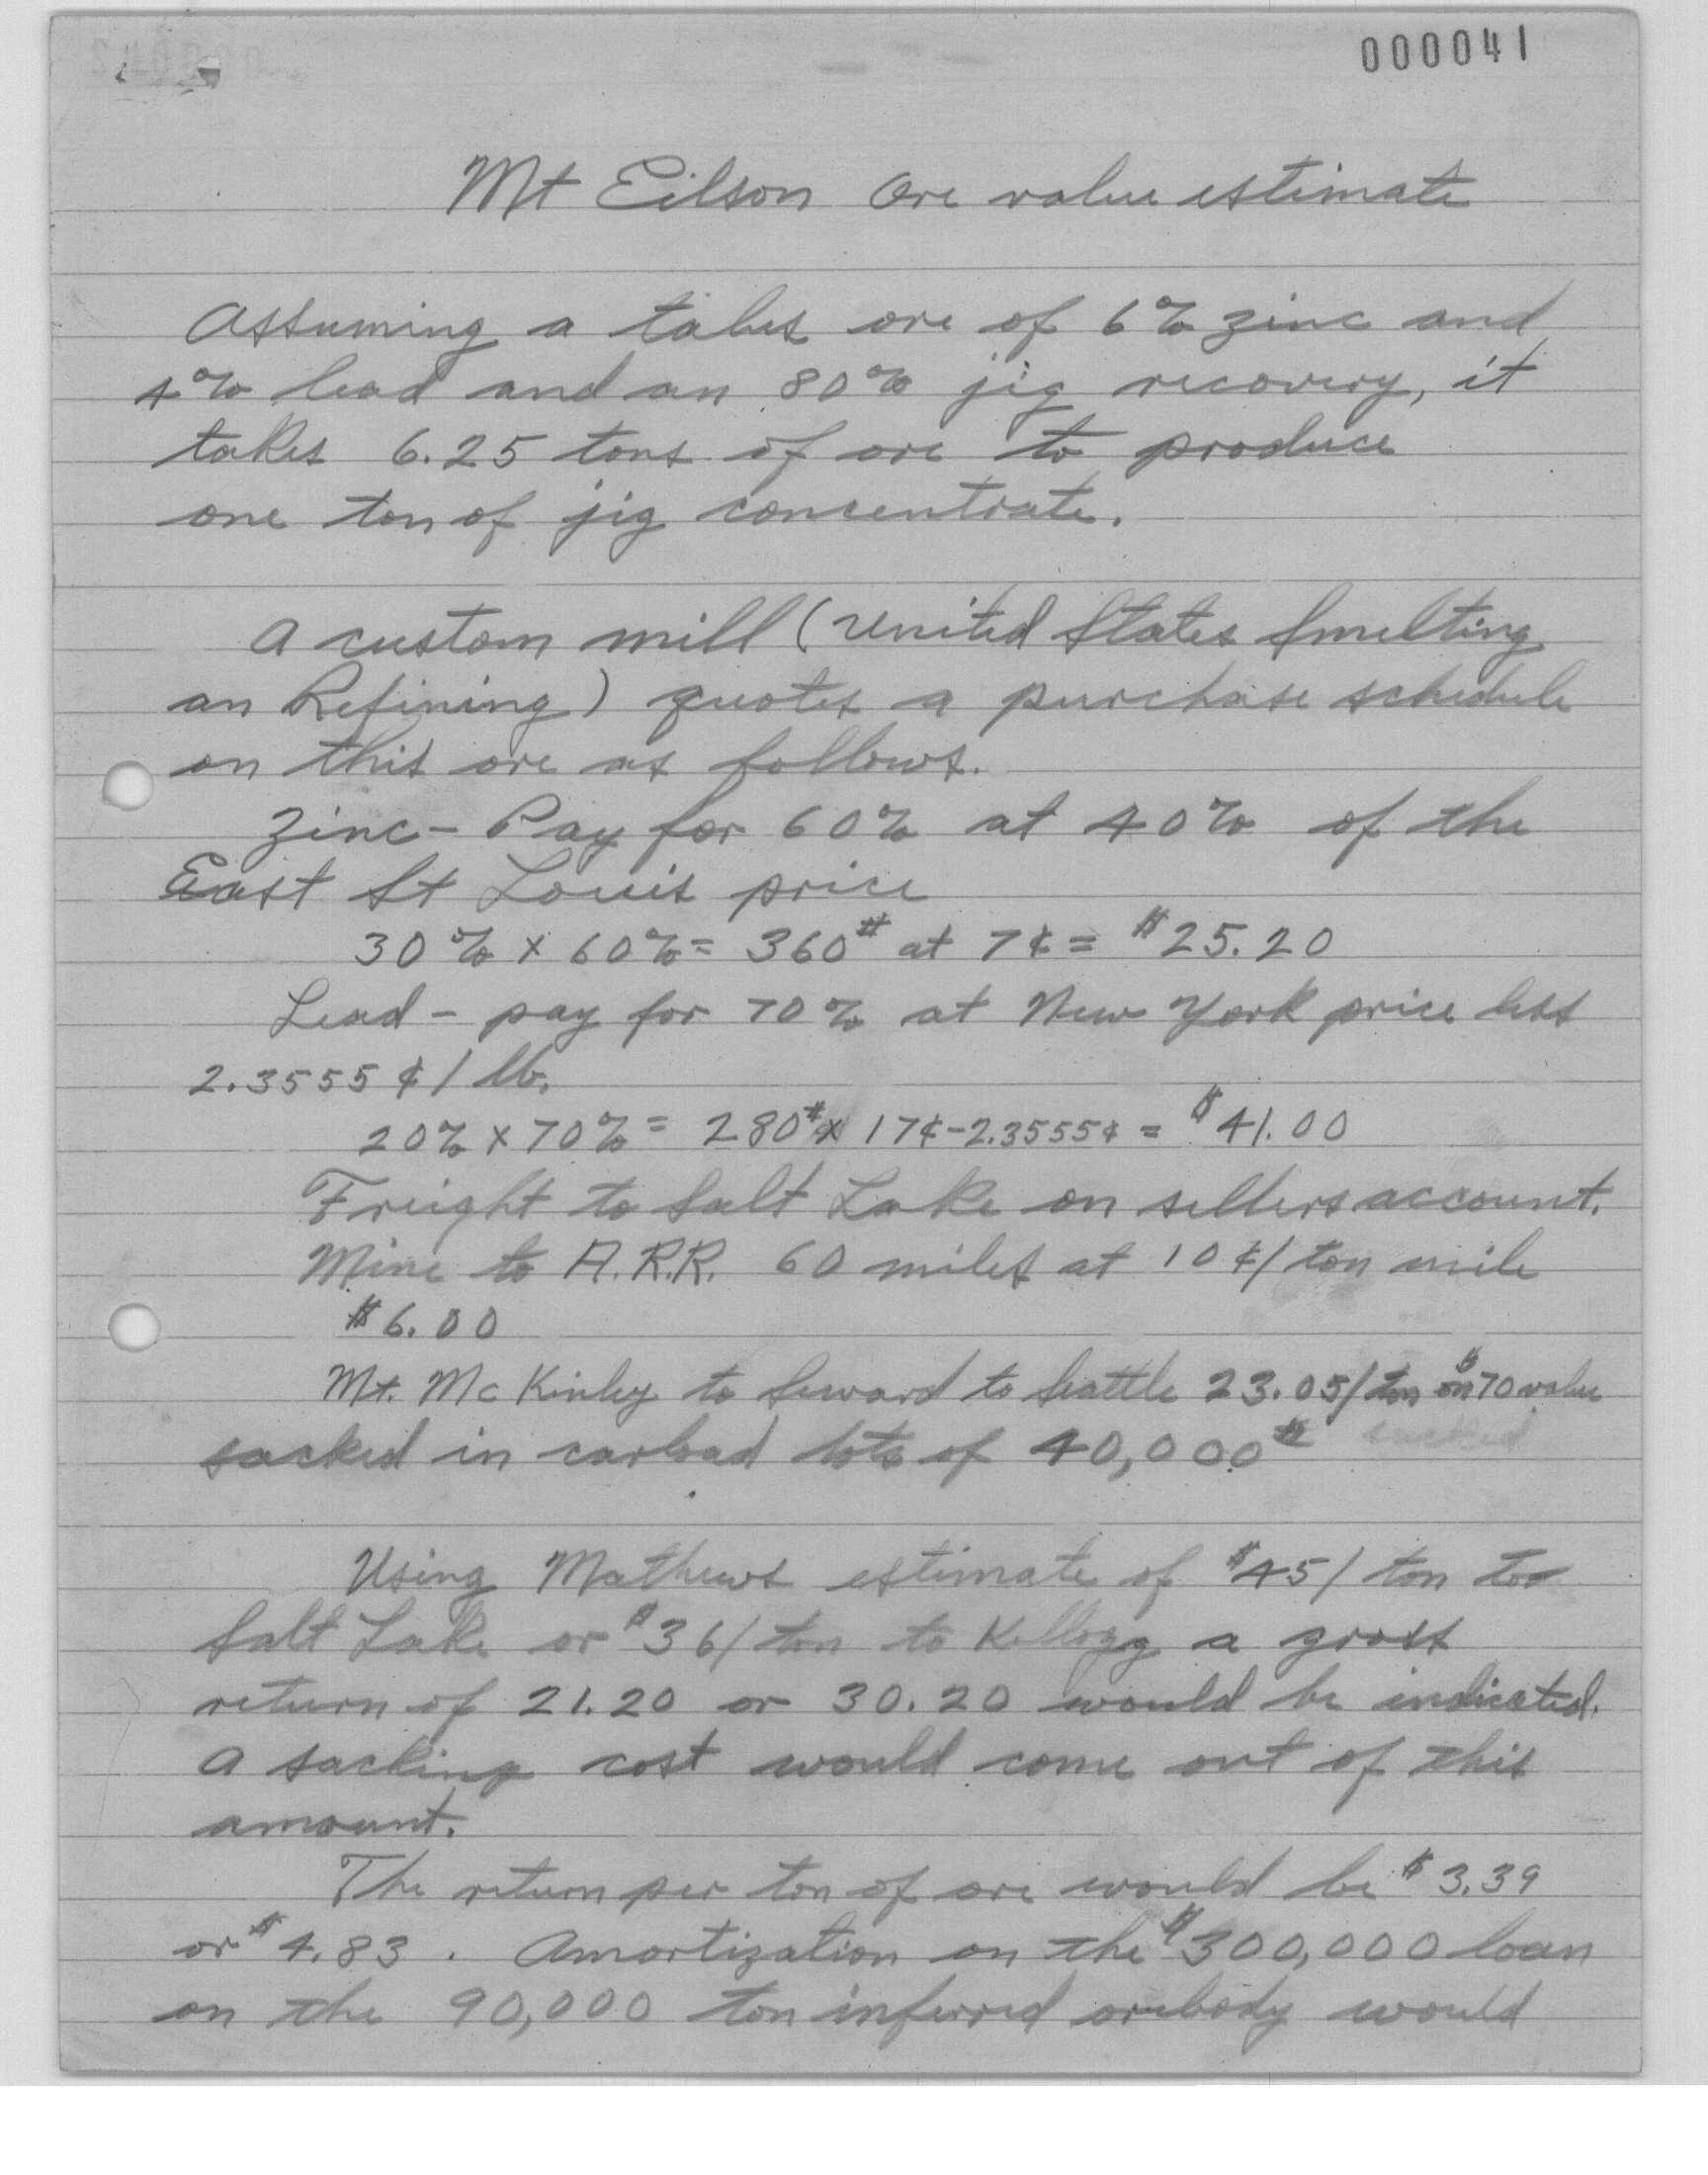 000041
Mt Eilson Ore value estimate
Assuming a takes ore of 6% zinc and
4% lead and an 80% jig recovery, it
takes 6.25 tons of ore to produce
one ton of jig concentrate.
A custom mill (United States Smelting
an Refining) quotes a purchase schedule
on this ore as follows.
Zinc - Pay for 60% at 40% of the
East St Louis price
30% x 60% = 360# at 7¢ = $25.20
Lead - pay for 70% at New York price less
2.3555¢/lb.
20% x 70% = 280# x 17¢-2.3555¢ = $41.00
Freight to Salt Lake on sellers account.
Mine to A.R.R. 60 miles at 10¢/ton mile
$6.00
Mt. McKinley to Seward to Seattle 23.05/ton on $70 value
sacked in carload lots of 40,000# sacked
Using Mathews estimate of $45/ton to
Salt Lake or $36/ton to Kellogg a gross
return of 21.20 or 30.20 would be indicated.
A sacking cost would come out of this
amount.
The return per ton of ore would be $3.39
or $4.83. Amortization on the $300,000 loan
on the 90,000 ton inferred orebody would